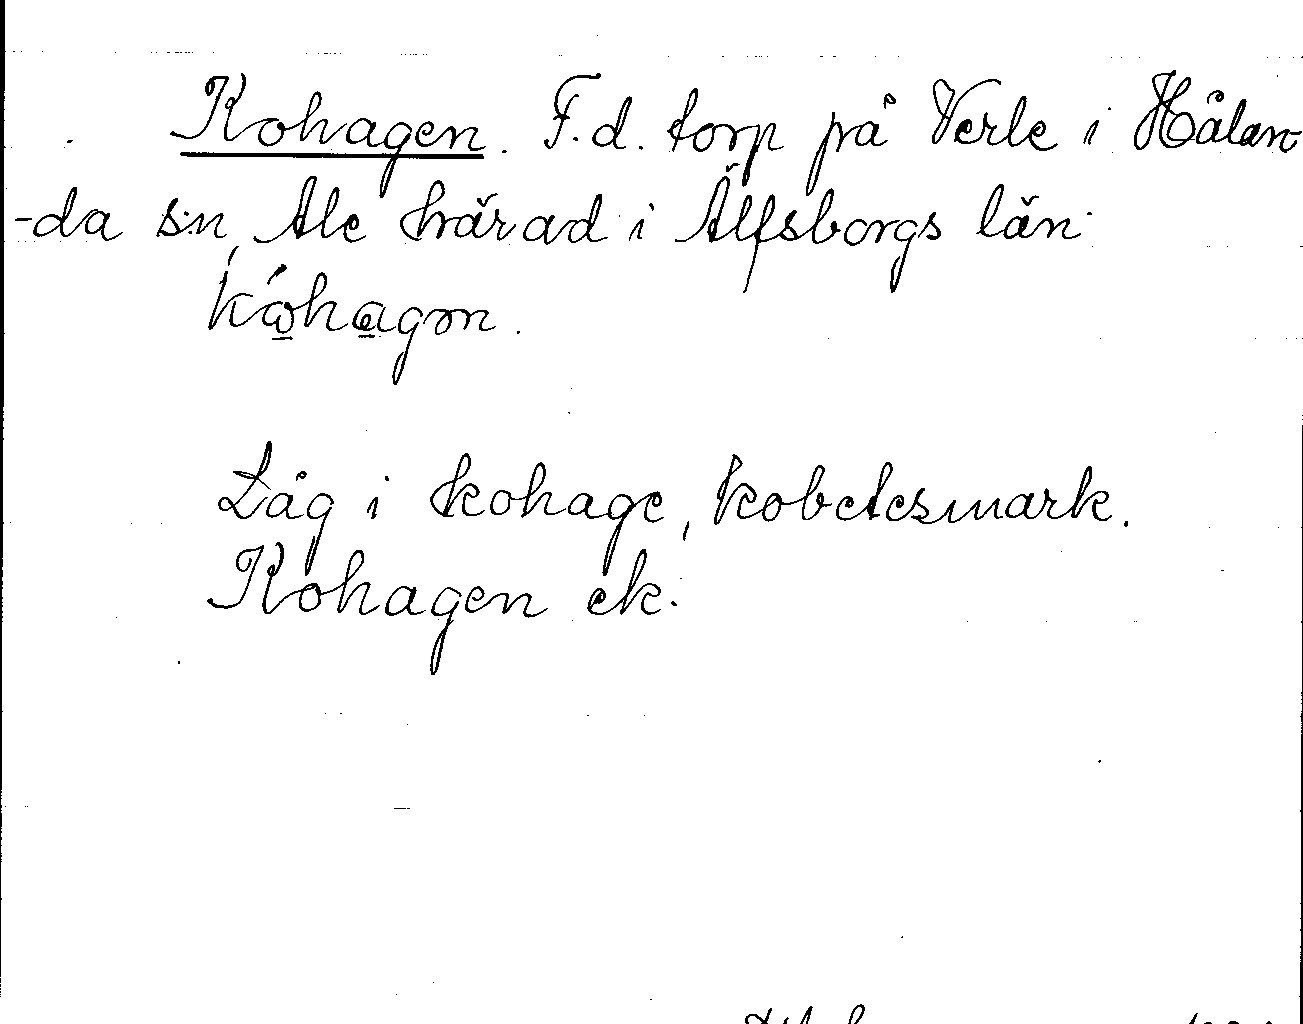 Kohagen. F.d. torp på Verle i Hålan-
-da s:n, Ale härad i Älfsborgs län.
Låg i kohage, kobetesmark.
Kohagen ek.